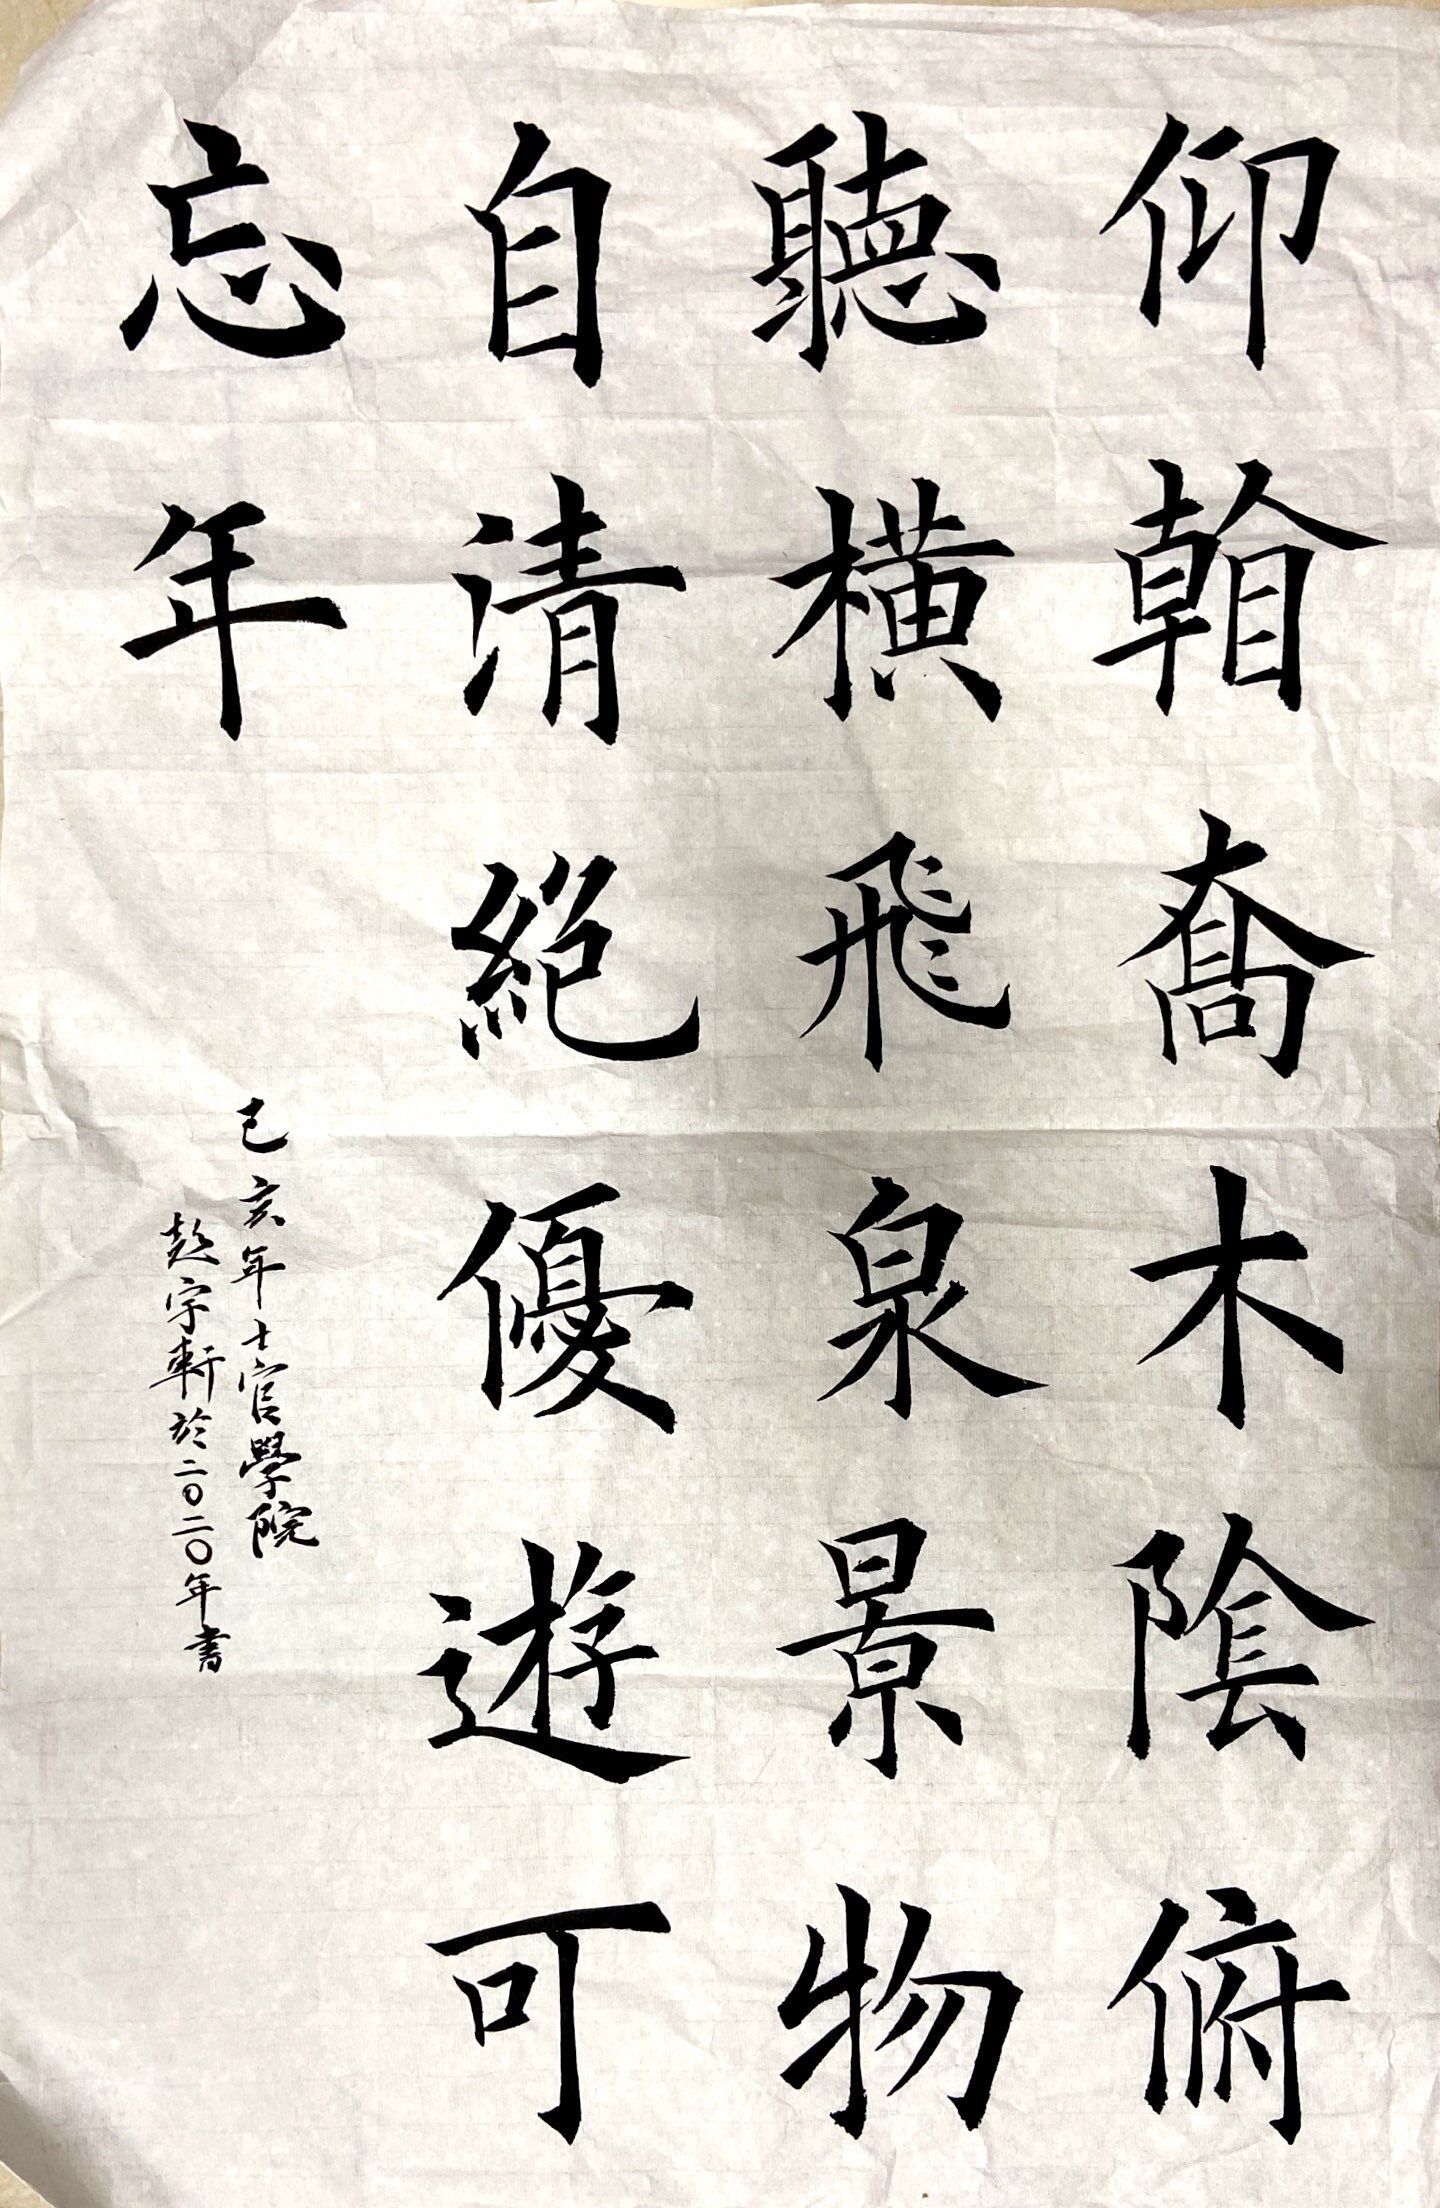 仰看喬木陰俯
聽橫飛泉景物
自清絕優遊可
忘年
己亥年士官學院
宇軒於二〇二〇年書